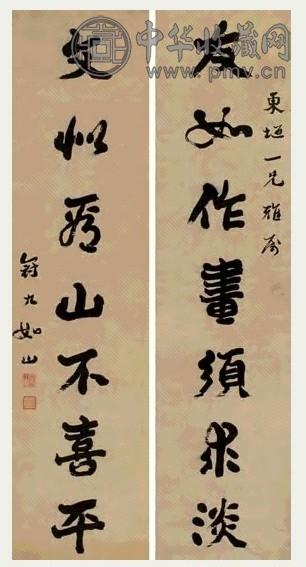 中华收藏网
www.pmv.cn
東垣一兄雅屬
友如作畫須求淡
文似看山不喜平
冠九如山